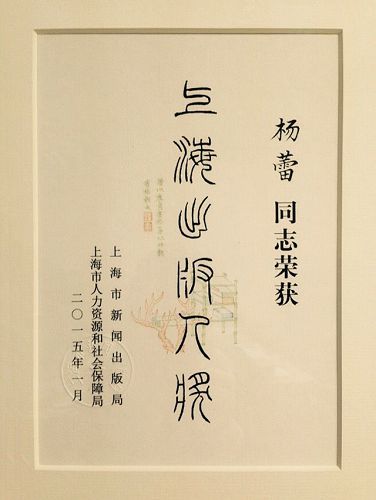 杨蕾 同志荣获
上海出版人奖
上海市新闻出版局
上海市人力资源和社会保障局
二〇一五年一月